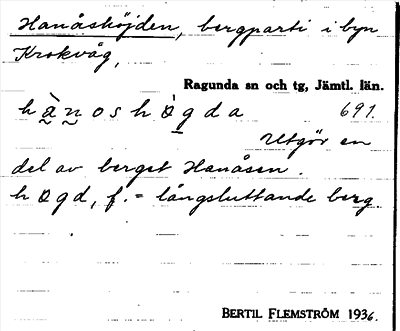 Hanåshöjden, bergparti i byn
Krokvåg,
Ragunda sn och tg, Jämtl. län.
hà̰n̰oshò̱gda 691.
Utgör en
del av berget Hanåsen.
högd, f. = långsluttande berg
BERTIL FLEMSTRÖM 1936.